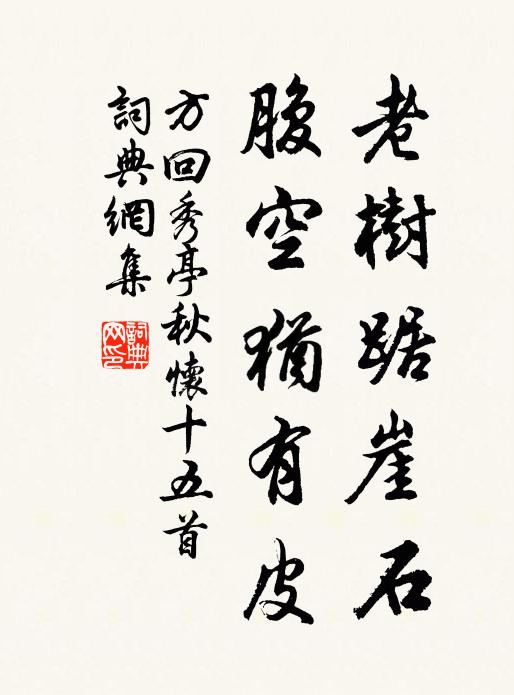 老樹踞崖石
腹空猶有皮
方回秀亭秋懷十五首
詞典網集
詞典网印